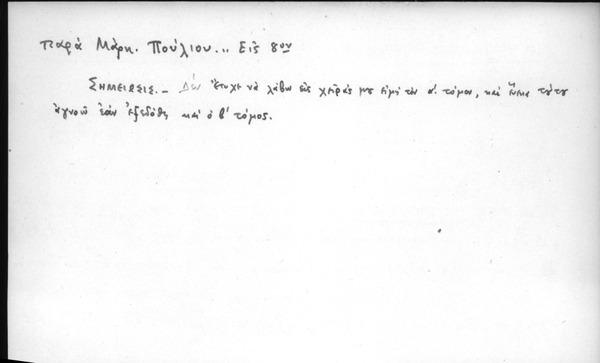 παρὰ Μάρκ. Πούλιου... Εἰς 8ον
Σημείωσις.- Δὲν ἔτυχε νὰ λάβω εἰς χεῖράς μου εἰμὴ τὸν α'. τόμον, καὶ ἕνεκα τούτου
ἀγνοῶ ἐὰν ἐξεδόθη καὶ ὁ β' τόμος.